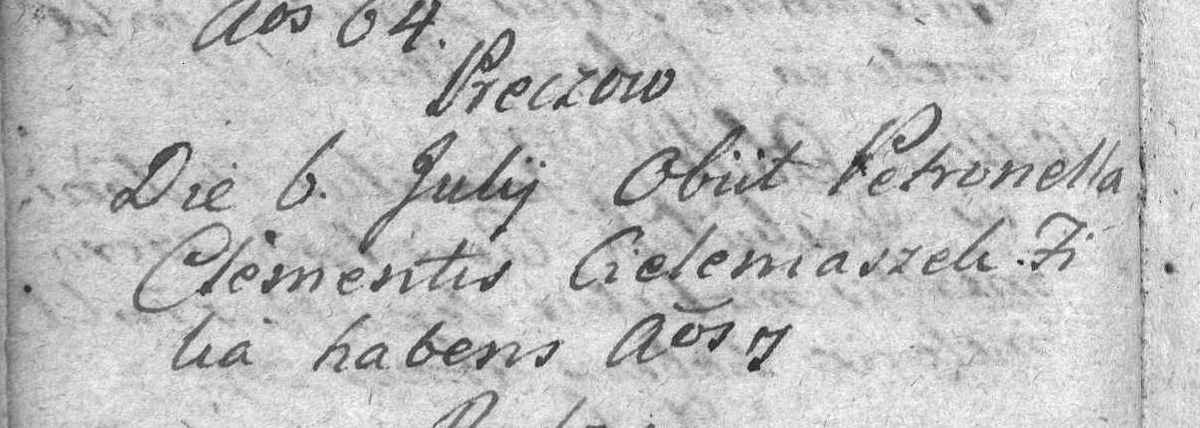 Aos 64.
Preczow
Die 6. Julij Obiit Petronella
Clementis Cieleniaszek Fi
lia habens Aõs 7